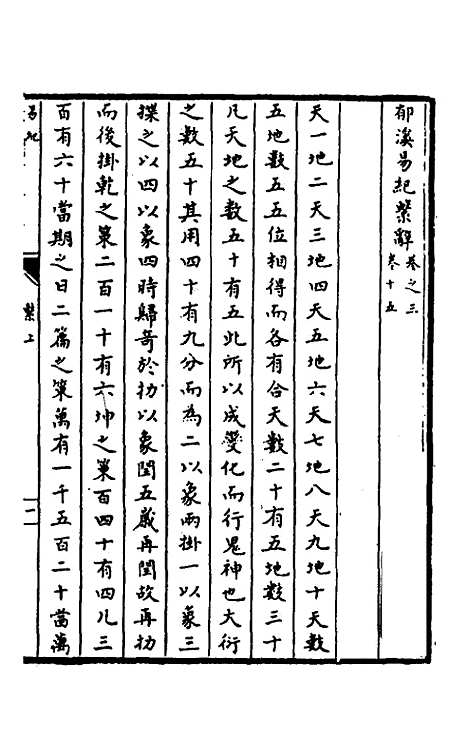 郁溪易紀繫辭 卷之三
卷十五
天一地二天三地四天五地六天七地八天九地十天數
五地數五五位相得而各有合天數二十有五地數三十
凡天地之數五十有五此所以成變化而行鬼神也大衍
之數五十其用四十有九分而為二以象兩掛一以象三
揲之以四以象四時歸奇於扐以象閏五歲再閏故再扐
而後掛乾之策二百一十有六坤之策百四十有四凡三
百有六十當期之日二篇之策萬有一千五百二十當萬
易紀
繫上
一